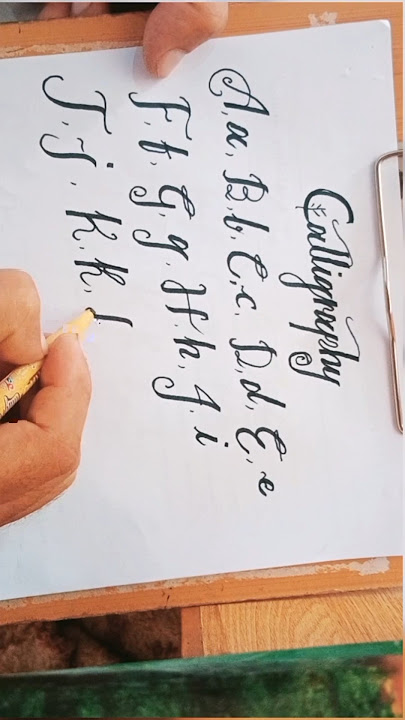 Calligraphy
A, a, B, b, C, c, D, d, E, e
F, f, G, g, H, h, I, i
J, j, K, k,